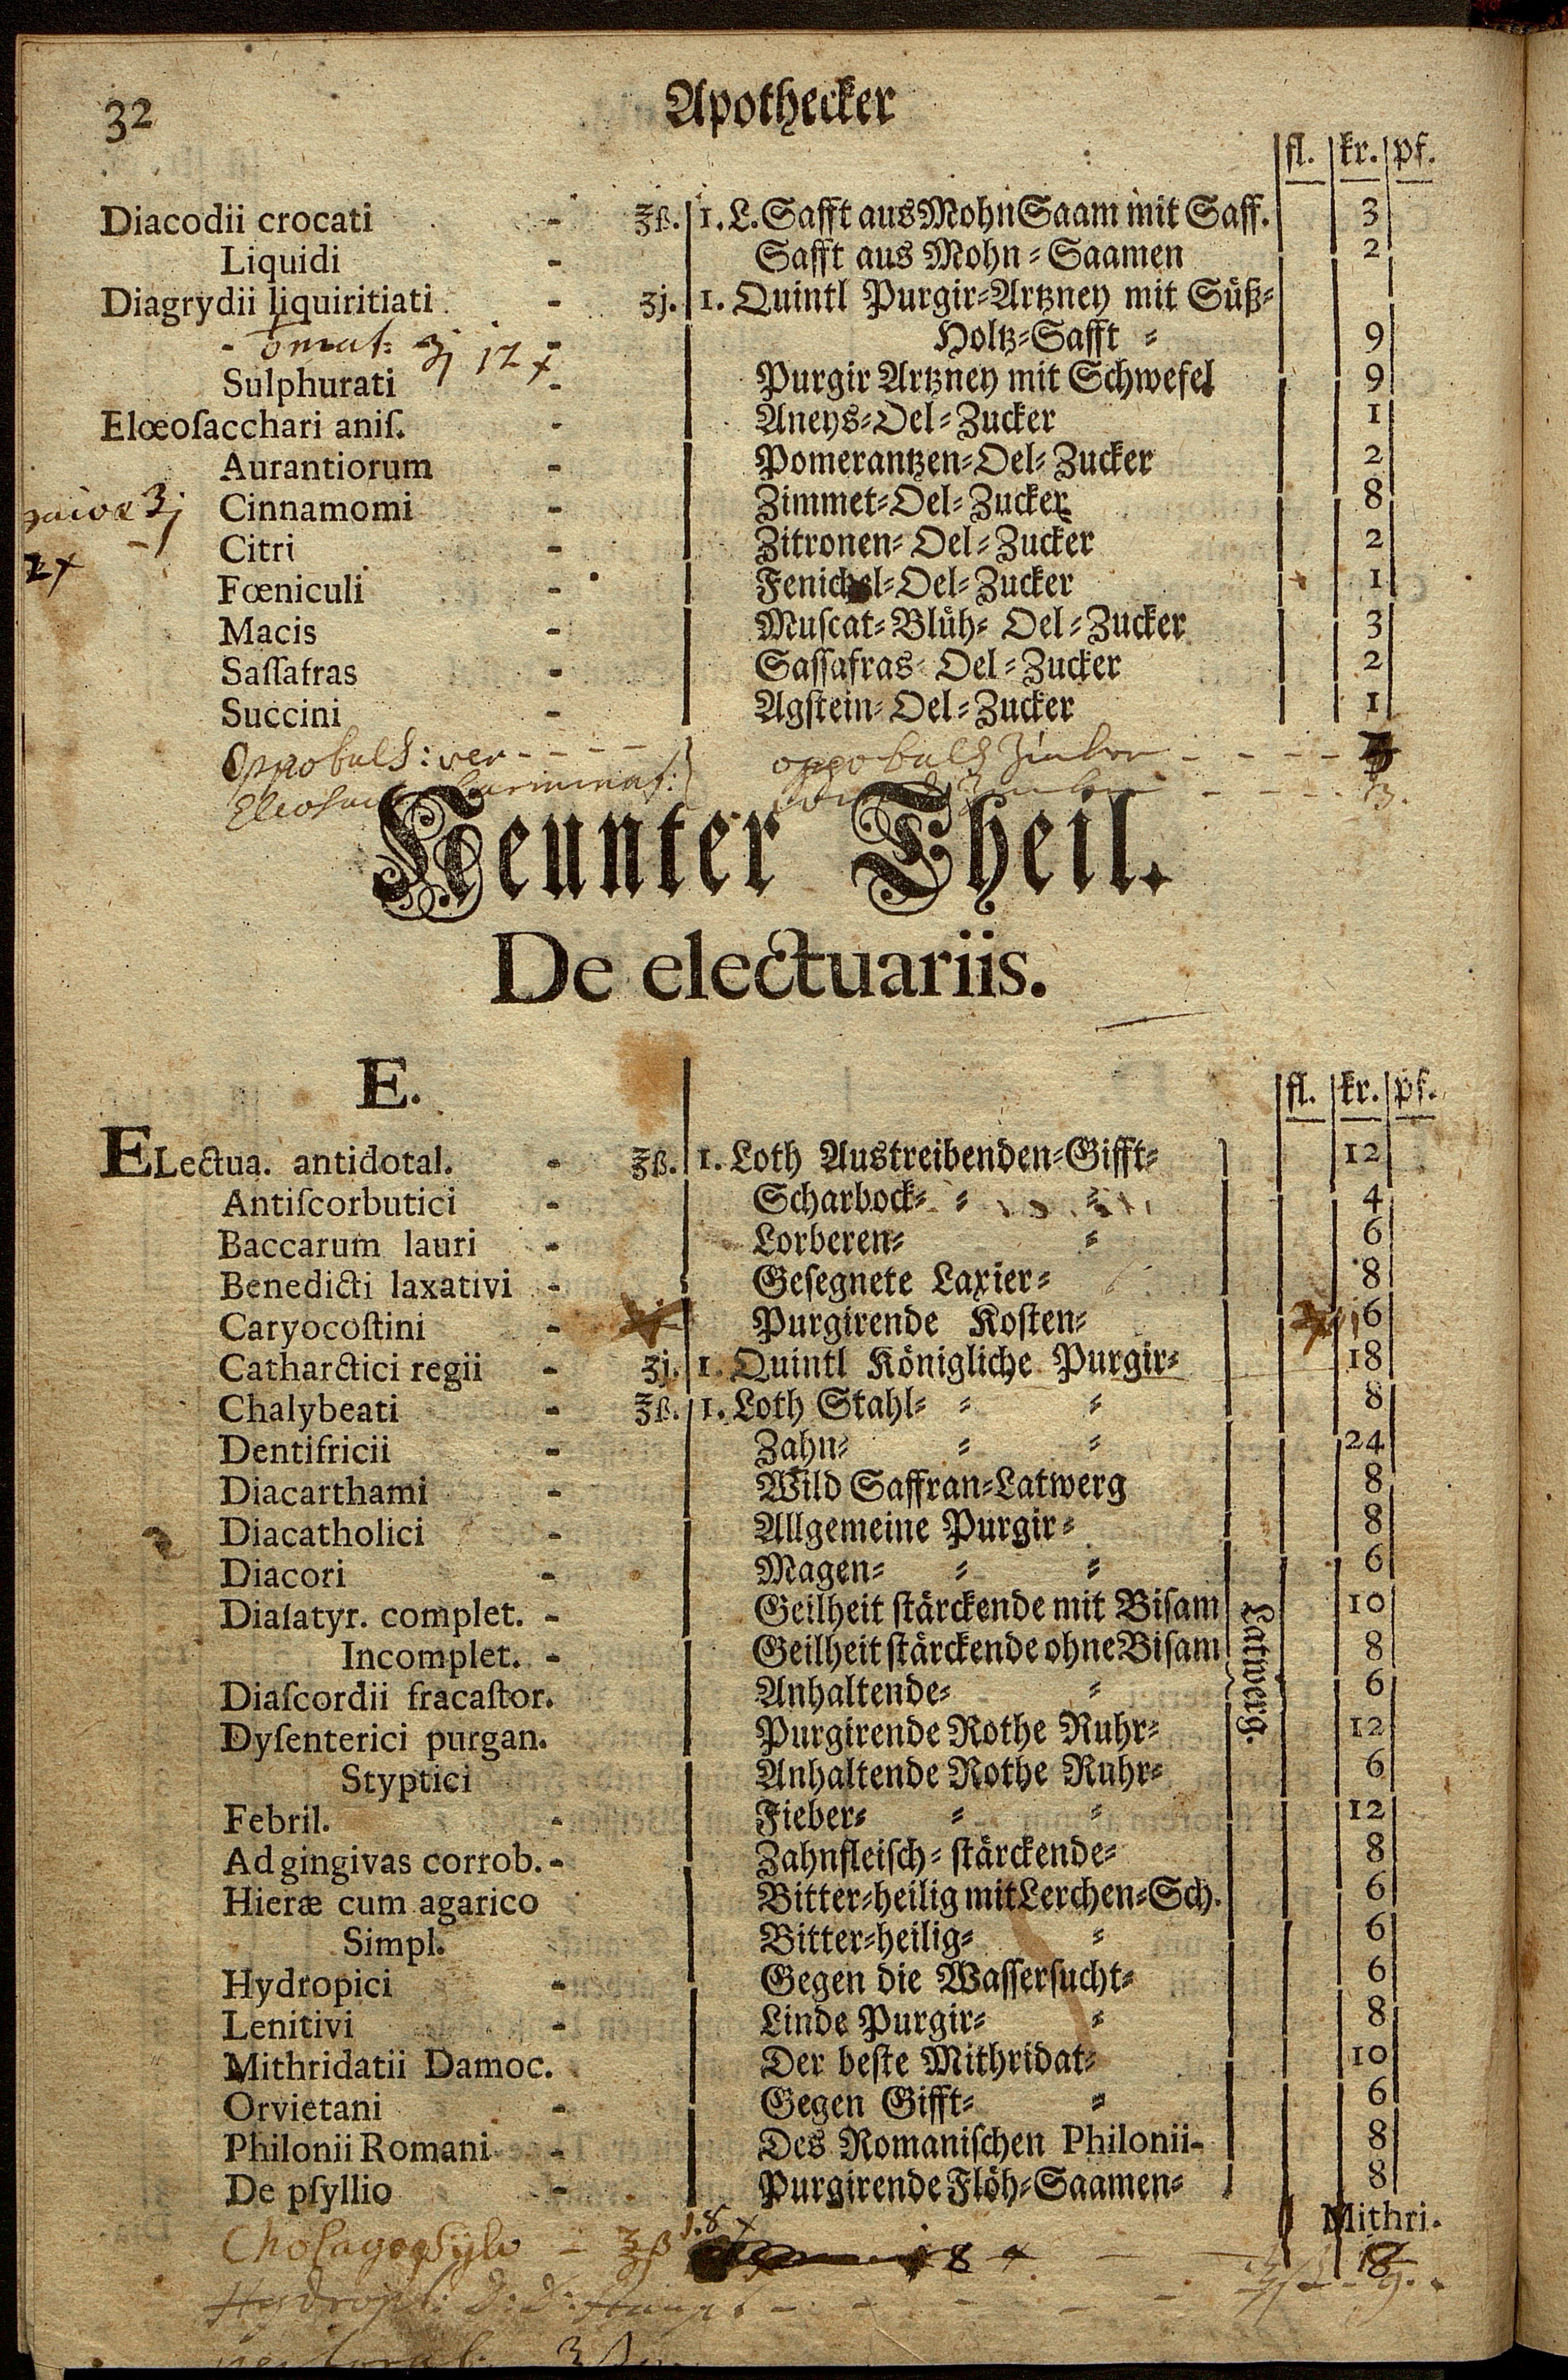 32 Apothecker
fl. kr. pf.
Diacodii crocati - ʒß. 1. L. Safft aus Mohn Saam mit Saff. 3
Liquidi - Safft aus Mohn-Saamen 2
Diagrydii liquiritiati - ʒj. 1. Quintl Purgir-Artzney mit Süß-
Holtz-Safft - 9
ʒj 12 x
Sulphurati - Purgir Artzney mit Schwefel 9
Elœoſacchari aniſ. - Aneys-Oel-Zucker 1
Aurantiorum - Pomerantzen-Oel-Zucker 2
ʒj Cinnamomi - Zimmet-Oel-Zucker 8
Citri - Zitronen-Oel-Zucker 2
2x
Fœniculi - Fenichel-Oel-Zucker 1
Macis - Muſcat-Blüh-Oel-Zucker 3
Saſſafras - Saſſafras-Oel-Zucker 2
Succini - Agſtein-Oel-Zucker 1
Neunter Theil.
De electuariis.
E.
fl. kr. pf.
ELectua. antidotal. - ʒß. 1. Loth Austreibenden-Gifft- 12
Antiſcorbutici - Scharbock- - - 4
Baccarum lauri - Lorberen- - 6
Benedicti laxativi - Geſegnete Laxier- 8
Caryocoſtini - Purgirende Koſten- 6
Catharctici regii - ʒj. 1. Quintl Königliche Purgir- 18
Chalybeati - ʒß. 1. Loth Stahl- - - 8
Dentifricii - Zahn- - - 24
Diacarthami - Wild Saffran-Latwerg 8
Diacatholici - Allgemeine Purgir- 8
Diacori - Magen- - - 6
Diaſatyr. complet. - Geilheit ſtärckende mit Biſam 10
Incomplet. - Geilheit ſtärckende ohne Biſam 8
Latwerg.
Diaſcordii fracaſtor. Anhaltende- - 6
Dyſenterici purgan. Purgirende Rothe Ruhr- 12
Styptici Anhaltende Rothe Ruhr- 6
Febril. - Fieber- - - 12
Ad gingivas corrob. - Zahnfleiſch-ſtärckende- 8
Hieræ cum agarico Bitter-heilig mit Lerchen-Sch. 6
Simpl. Bitter-heilig- - 6
Hydropici - Gegen die Waſſerſucht- 6
Lenitivi - Linde Purgir- - 8
Mithridatii Damoc. Der beſte Mithridat- 10
Orvietani - Gegen Gifft- - 6
Philonii Romani - Des Romaniſchen Philonii- 8
De pſyllio - Purgirende Flöh-Saamen- 8
Mithri.
ʒß 8 x 18